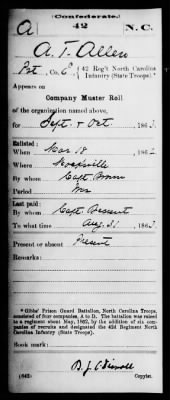 (Confederate.)
A 42 N.C.
A. T. Allen
Pvt, Co. E, 42 Reg't North Carolina
Infantry (State Troops).*
Appears on
Company Muster Roll
of the organization named above,
for Sept & Oct, 1863.
Enlisted:
When Mar 18, 1862.
Where Mocksville
By whom Capt
Period War
Last paid:
By whom Capt. Bessent
To what time Aug. 31, 1863.
Present or absent Present
Remarks:
*Gibbs' Prison Guard Battalion, North Carolina Troops,
consisted of four companies, A to D. The battalion was raised
to a regiment about May, 1862, by the addition of six companies
of recruits and designated the 42d Regiment North Carolina
Infantry (State Troops).
Book mark:
(642)
Copyist.